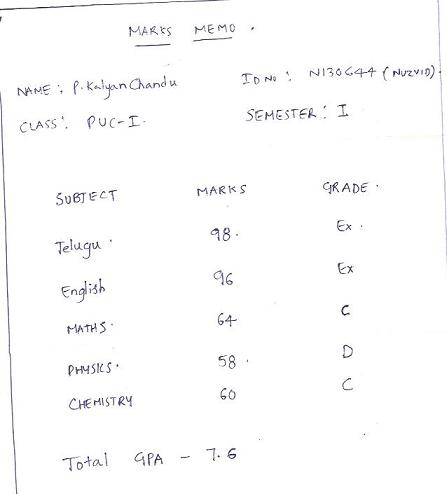 MARKS MEMO.
NAME: P. Kalyan Chandu ID NO: N130644 (NUZVID).
CLASS: PUC-I. SEMESTER: I
SUBJECT MARKS GRADE.
Telugu. 98. Ex.
English 96 Ex
MATHS. 64 C
PHYSICS. 58. D
CHEMISTRY 60 C
Total GPA - 7.6